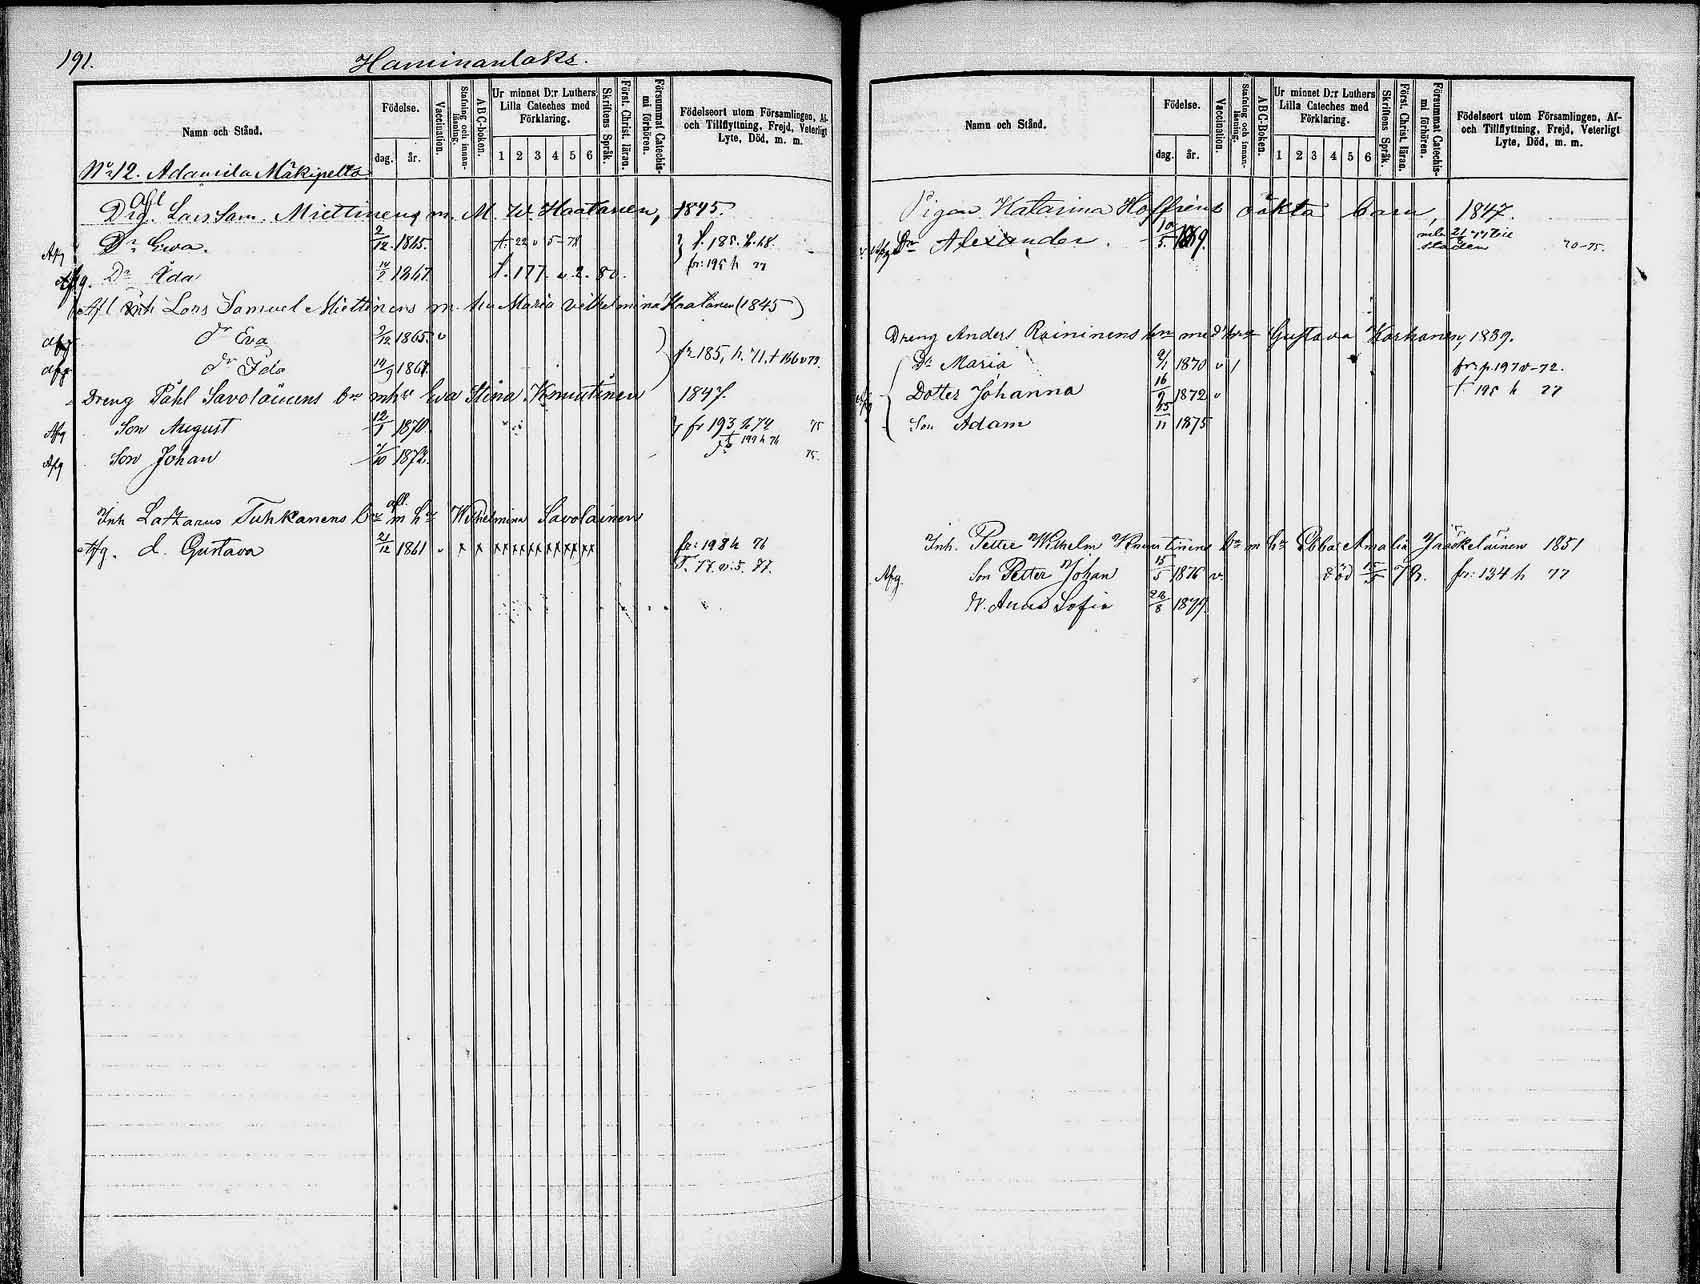 191.
Haminanlaks.
Namn och Stånd.
Födelse.
dag.
år.
Vaccination.
Stafning och innanläsning.
A B C-boken.
Ur minnet D:r Luthers Lilla Cateches med Förklaring.
1 2 3 4 5 6
Skriftens Språk.
Först. Christ. läran.
Försummat Catechismi förhören.
Födelseort utom Församlingen, Af- och Tillflyttning, Frejd, Veterligt Lyte, Död, m. m.
No 12. Adamila Mäkipelto
afl
Drg. Lars Sam. Miettinens m. M. W. Haatanen, 1845.
Afg Dr Ewa. 2/12 1865. f. 185. h. 68
Afg. Dr Ida 1867. f. 177. v. 2. 80. fr: 195 h 77
Afl Inh Lars Samuel Miettinens m. hu Maria Vilhelmina Haatanen (1845)
afg dr Eva 2/12 1865. v
afg dr Ida 14/9 1867. fr 185, h. 71, t 186 v 73.
Dreng Påhl Savolainens bn m hu Eva Stina Knuutinen 1847.
Afg Son August 12/1 1870. fr 193 h 72 75
199 h 76
Afg Son Johan 1872. 75.
afl
Inh Latsarus Tuhkanens bn m hu Wilhelmina Savolainen
Afg. d. Gustava 21/12 1861 v x x xx xx xx xx xx xx fr: 198 h 76
T. 77. v. 5. 77.
Namn och Stånd.
Födelse.
dag.
år.
Vaccination.
Stafning och innanläsning.
A B C-Boken.
Ur minnet D:r Luthers Lilla Cateches med Förklaring.
1 2 3 4 5 6
Skriftens Språk.
Först. Christ. läran.
Försummat Catechismi förhören.
Födelseort utom Församlingen, Af- och Tillflyttning, Frejd, Veterligt Lyte, Död, m. m.
Pigan Katarina Hoffréns oäkta barn, 1847.
Afg Dn Alexander. 10/5 1869. staden 70-75.
Dreng Anders Reininens bn med hu Gustava Korhonen, 1839.
Dr Maria 9/1 1870 v / fr: p. 197 v-72.
Dotter Johanna 16/9 1872 v t 195 h 77
Son Adam 25/11 1875
Inh. Petter Wilhelm Knuutinens bn m hu Ebba Amalia Jääskeläinen 1851
Afg. Son Petter Johan 15/5 1876 v. död 15/5 78. fr: 134 h 77
D. Anna Sofia 28/8 1879.